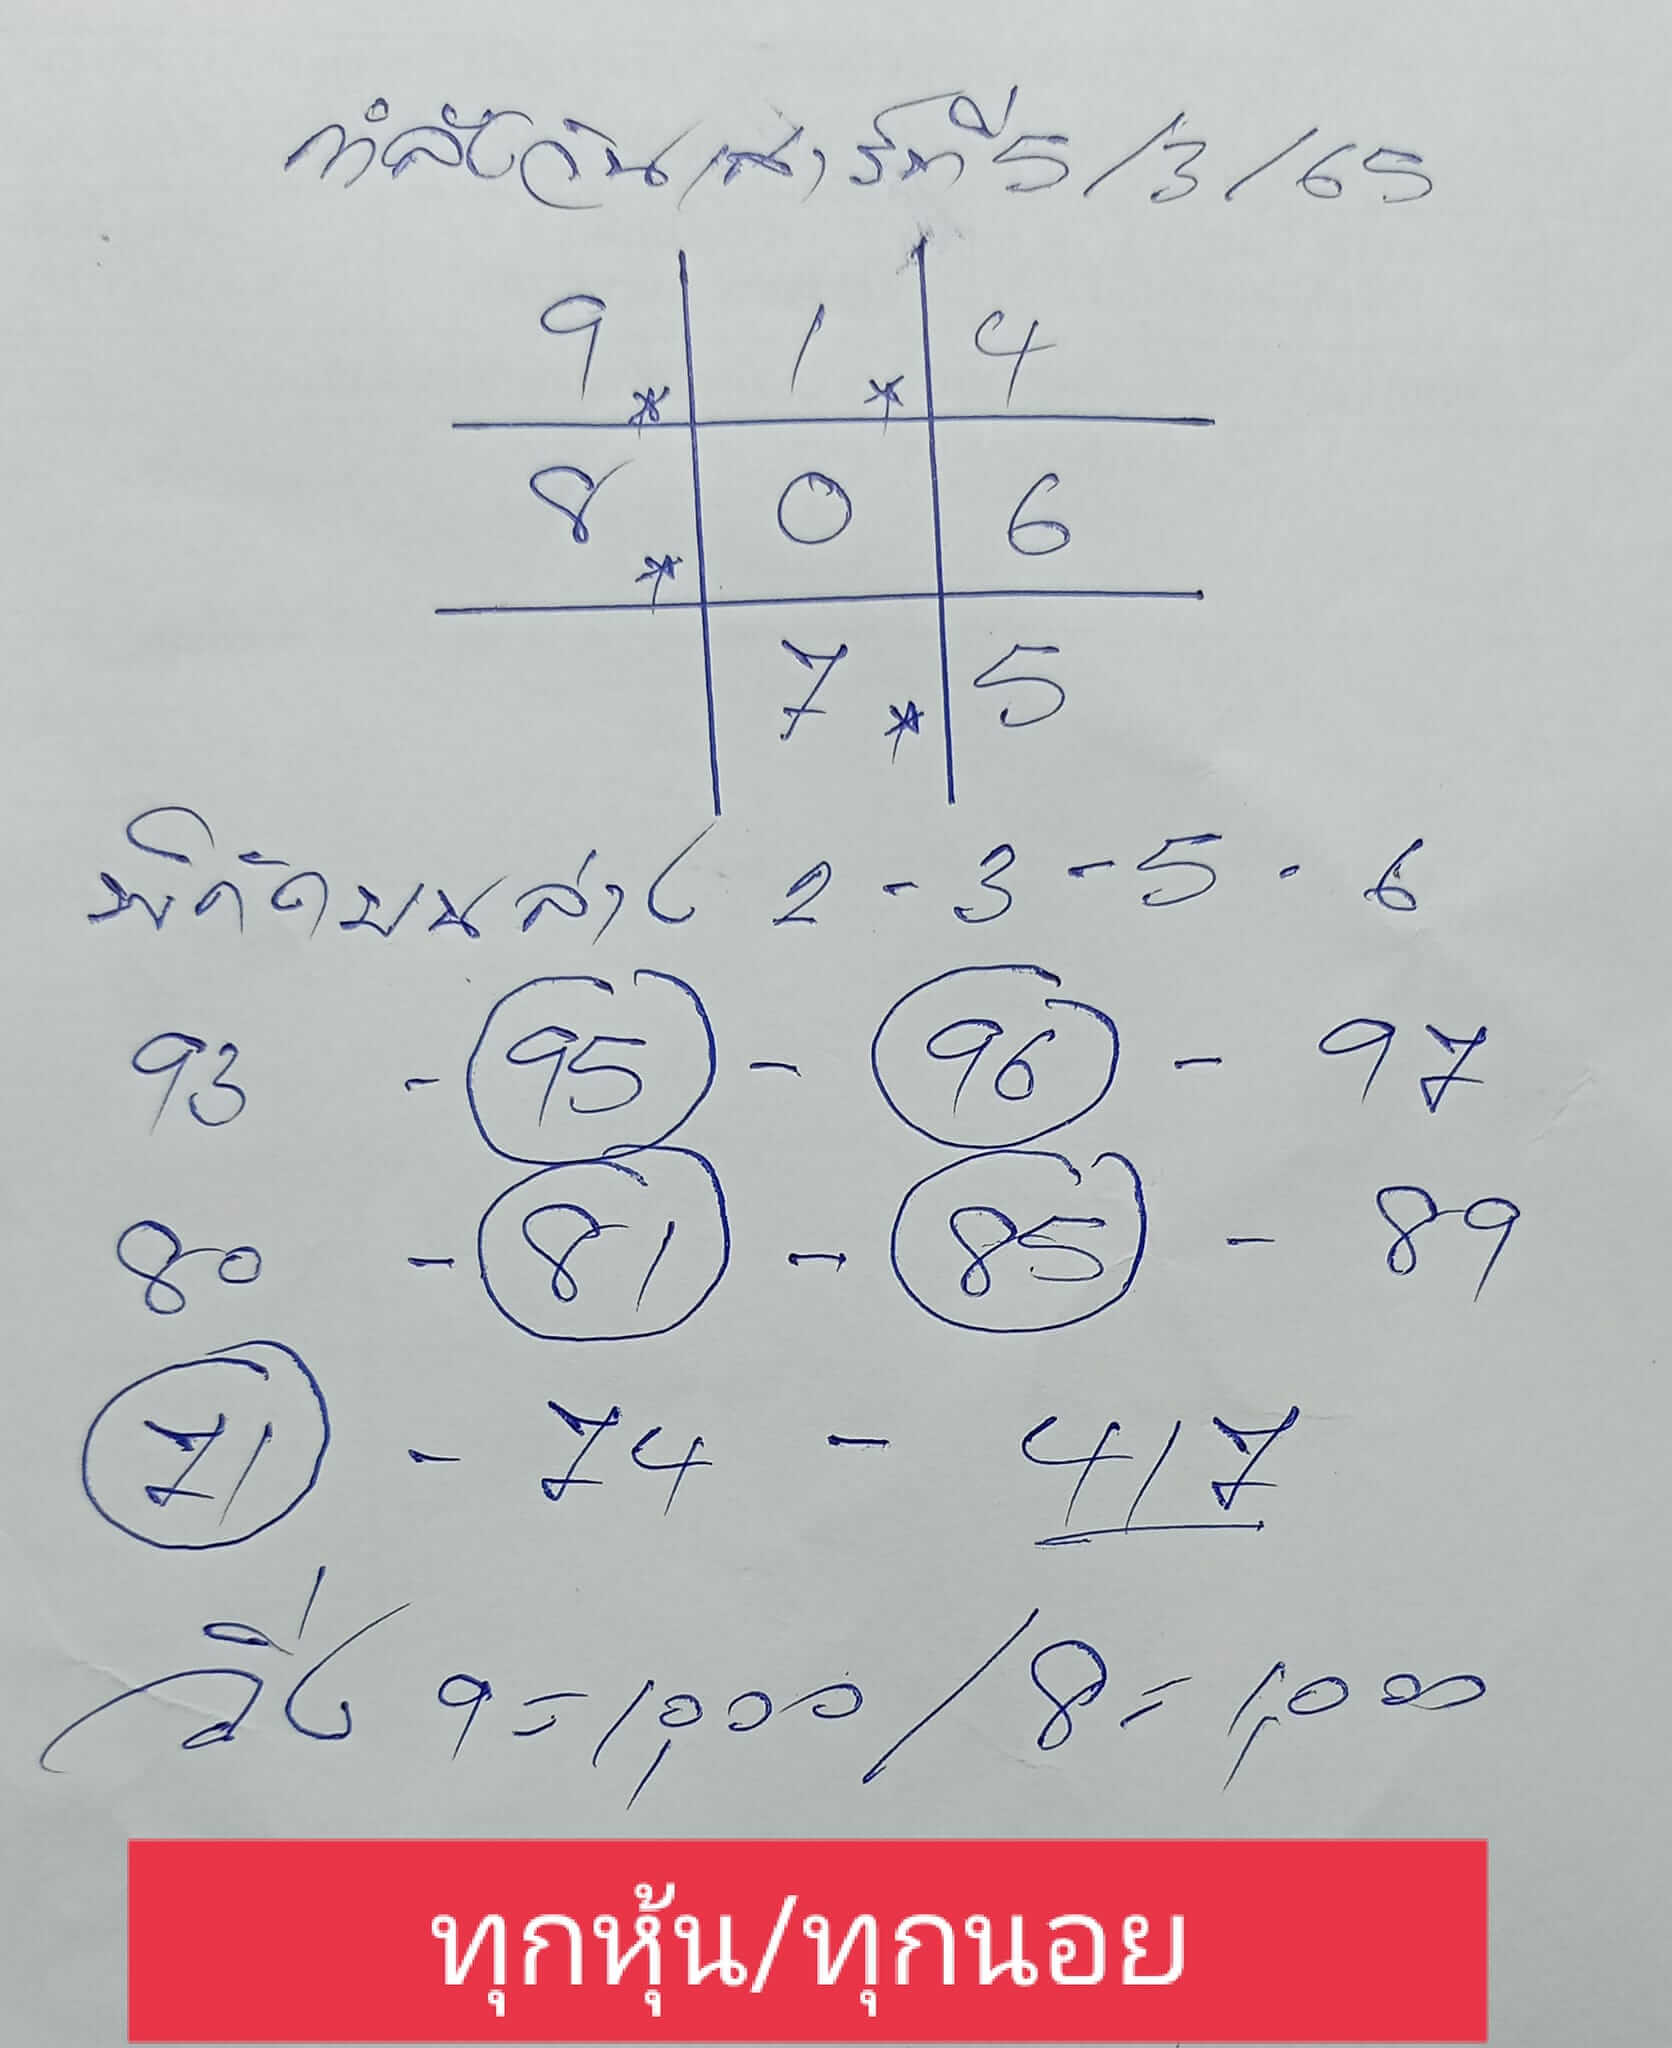 กำลังวันเสาร์ที่ 5/3/65
9 * 1 * 4
8 * 0 6
7 * 5
พิกัดบนล่าง 2 - 3 - 5 - 6
93 - 95 - 96 - 97
80 - 81 - 85 - 89
71 - 74 - 417
วิ่ง 9=1,000 / 8=1,000
ทุกหุ้น/ทุกนอย